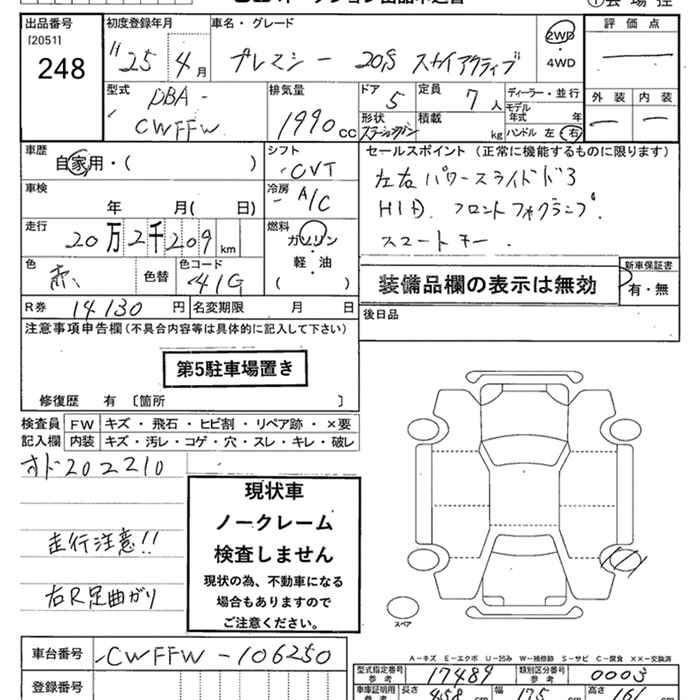 出品番号 初度登録年月 車名・グレード 評価点
[2051]
248
H25年 4月 プレマシー 20S スカイアクティブ 2WD
4WD
型式 DBA-
CWFFW
排気量 1990cc
ドア 5 定員 7人 ディーラー・並行
外装 内装
形状 ステーションワゴン 積載 kg
モデル年式 年
ハンドル 左 右
車歴 自家用・( )
シフト CVT
セールスポイント (正常に機能するものに限ります)
左右パワースライドドア
HID. フロントフォグランプ.
スマートキー.
車検 年 月( 日)
冷房 A/C
走行 20万2千209km
燃料 ガソリン
軽・油
( )
色 赤 色替 色コード 41G
装備品欄の表示は無効
新車保証書
有・無
R券 14130円 名変期限 月 日
後日品
注意事項申告欄(不具合内容等は具体的に記入して下さい)
第5駐車場置き
修復歴 有〔箇所 〕
検査員 FW キズ・飛石・ヒビ割・リペア跡・×要
記入欄 内装 キズ・汚レ・コゲ・穴・スレ・キレ・破レ
オド202210
走行注意!!
右R足曲がり
現状車
ノークレーム
検査しません
現状の為、不動車になる
場合もありますので
ご注意ください。
スペア
A-キズ E-エクボ U-凹み W-補修跡 S-サビ C-腐食 ××-交換済
車台番号 CWFFW-106250
登録番号
型式指定番号 参考 17489 類別区分番号 参考 0003
車庫証明用 参考 長さ 458cm 幅 175cm 高さ 161cm